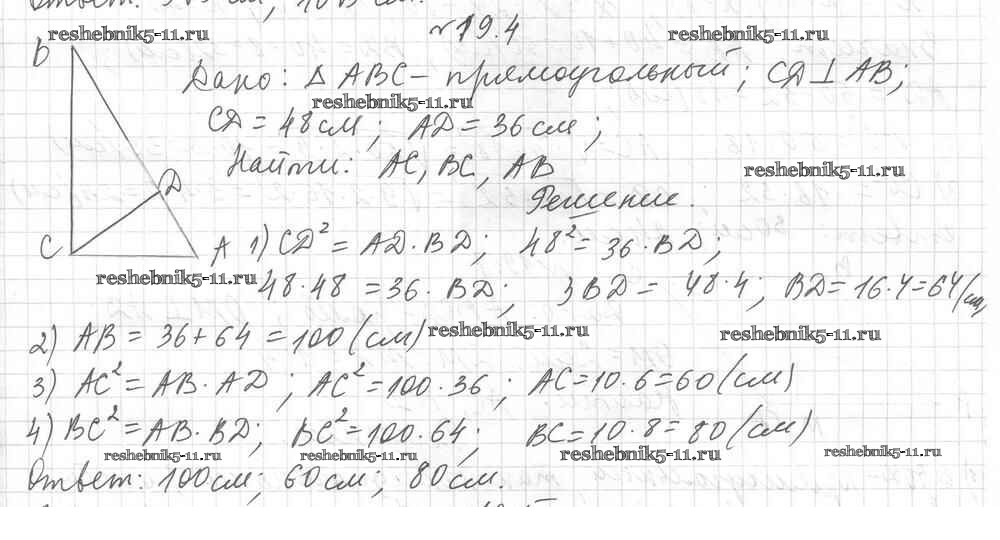 Ответ:
reshebnik5-11.ru
№19.4
reshebnik5-11.ru
B
Дано: Δ ABC – прямоугольный; CD ⊥ AB;
reshebnik5-11.ru
CD = 48 см; AD = 36 см;
Найти: AC, BC, AB
reshebnik5-11.ru
D
Решение.
C
A
1) CD² = AD · BD; 48² = 36 · BD;
reshebnik5-11.ru
48·48 = 36 · BD; 3BD = 48·4; BD = 16·4 = 64 (см)
2) AB = 36 + 64 = 100 (см)
reshebnik5-11.ru
reshebnik5-11.ru
3) AC² = AB · AD; AC² = 100·36; AC = 10·6 = 60 (см)
4) BC² = AB · BD; BC² = 100·64; BC = 10·8 = 80 (см)
reshebnik5-11.ru
reshebnik5-11.ru
reshebnik5-11.ru
reshebnik5-11.ru
Ответ: 100 см; 60 см; 80 см.